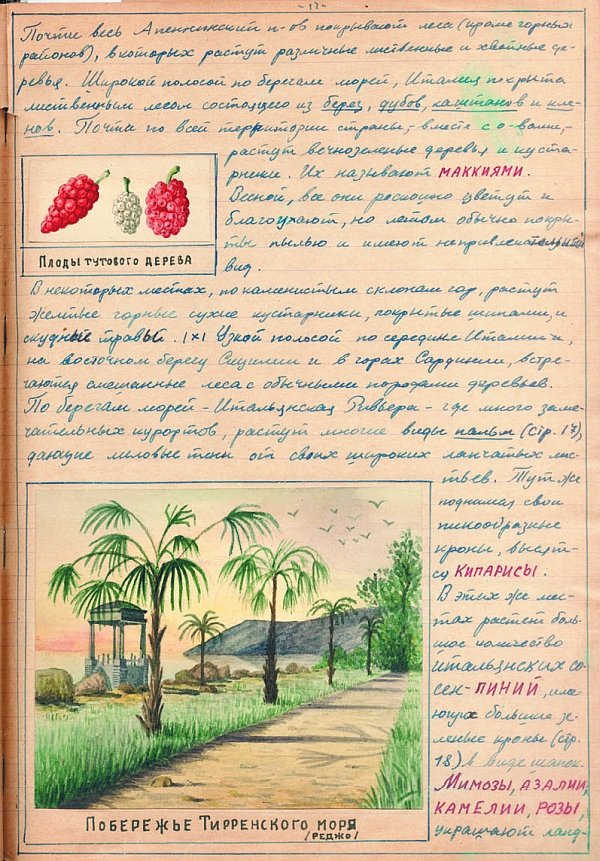 - 17 -
Почти весь Апеннинский п-ов покрывают леса (кроме горных
районов), в которых растут различные лиственные и хвойные де-
ревья. Широкой полосой по берегам морей, Италия покрыта
лиственным лесом состоящего из берез, дубов, каштанов и кле-
нов. Почти по всей территории страны,- вместе с о-вами,-
растут вечнозеленые деревья и куста-
рники. Их называют МАККИЯМИ.
Весной, все они роскошно цветут и
благоухают, но летом обычно покры-
ты пылью и имеют непривлекательный
вид.
ПЛОДЫ ТУТОВОГО ДЕРЕВА
В некоторых местах, по каменистым склонам гор, растут
желтые горные сухие кустарники, покрытые шипами, и
скудные травы. 1х1 Узкой полосой по середине Италии и,
на восточном берегу Сицилии и в горах Сардинии, встре-
чаются смешанные леса с обычными породами деревьев.
По берегам морей - Итальянская Ривьера - где много заме-
чательных курортов, растут многие виды пальм (стр. 17),
дающие миловые тени от своих широких лапчатых лис-
тьев. Тут же
поднимая свои
пикообразные
кроны, высят-
ся КИПАРИСЫ.
В этих же мес-
тах растет боль-
шое количество
итальянских со-
сен- ПИНИЙ, име-
ющих большие зе-
леные кроны (стр.
18) в виде шапок.
МИМОЗЫ, АЗАЛИИ,
КАМЕЛИИ, РОЗЫ,
украшают ланд-
ПОБЕРЕЖЬЕ ТИРРЕНСКОГО МОРЯ
/РЕДЖО/